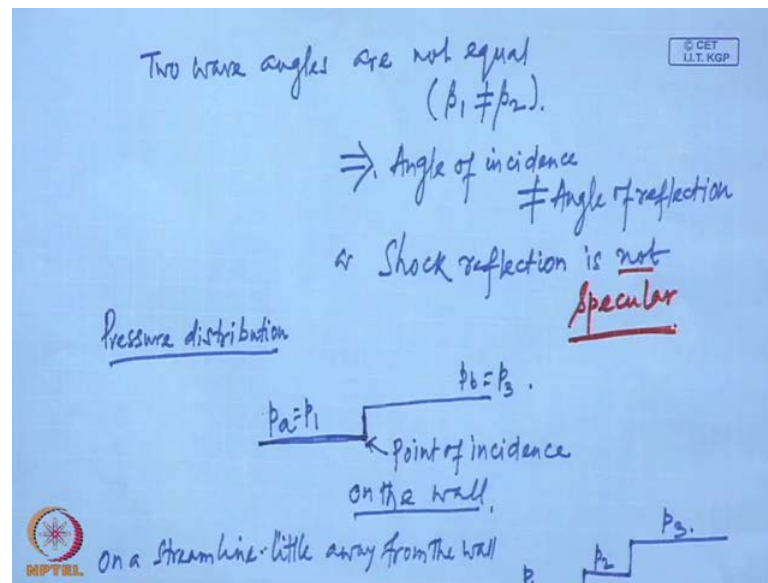 Two wave angles are not equal
© CET
I.I.T. KGP
(β₁ ≠ β₂).
⇒. Angle of incidence
≠ Angle of reflection
or Shock reflection is not
Specular
Pressure distribution
p_b = p₃.
p_a = p₁
Point of incidence
on the wall.
p₃.
On a streamline little away from the wall
p₂
p
NPTEL